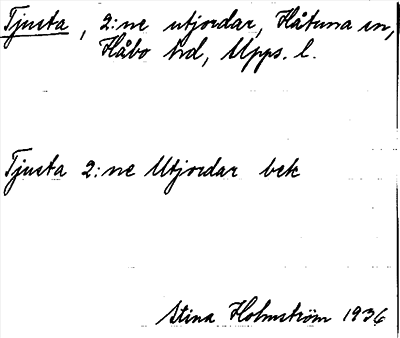 Tjusta, 2:ne utjordar, Håtuna sn,
Håbo hd, Upps. l.
Tjusta 2:ne Utjordar bek
Stina Holmström 1936